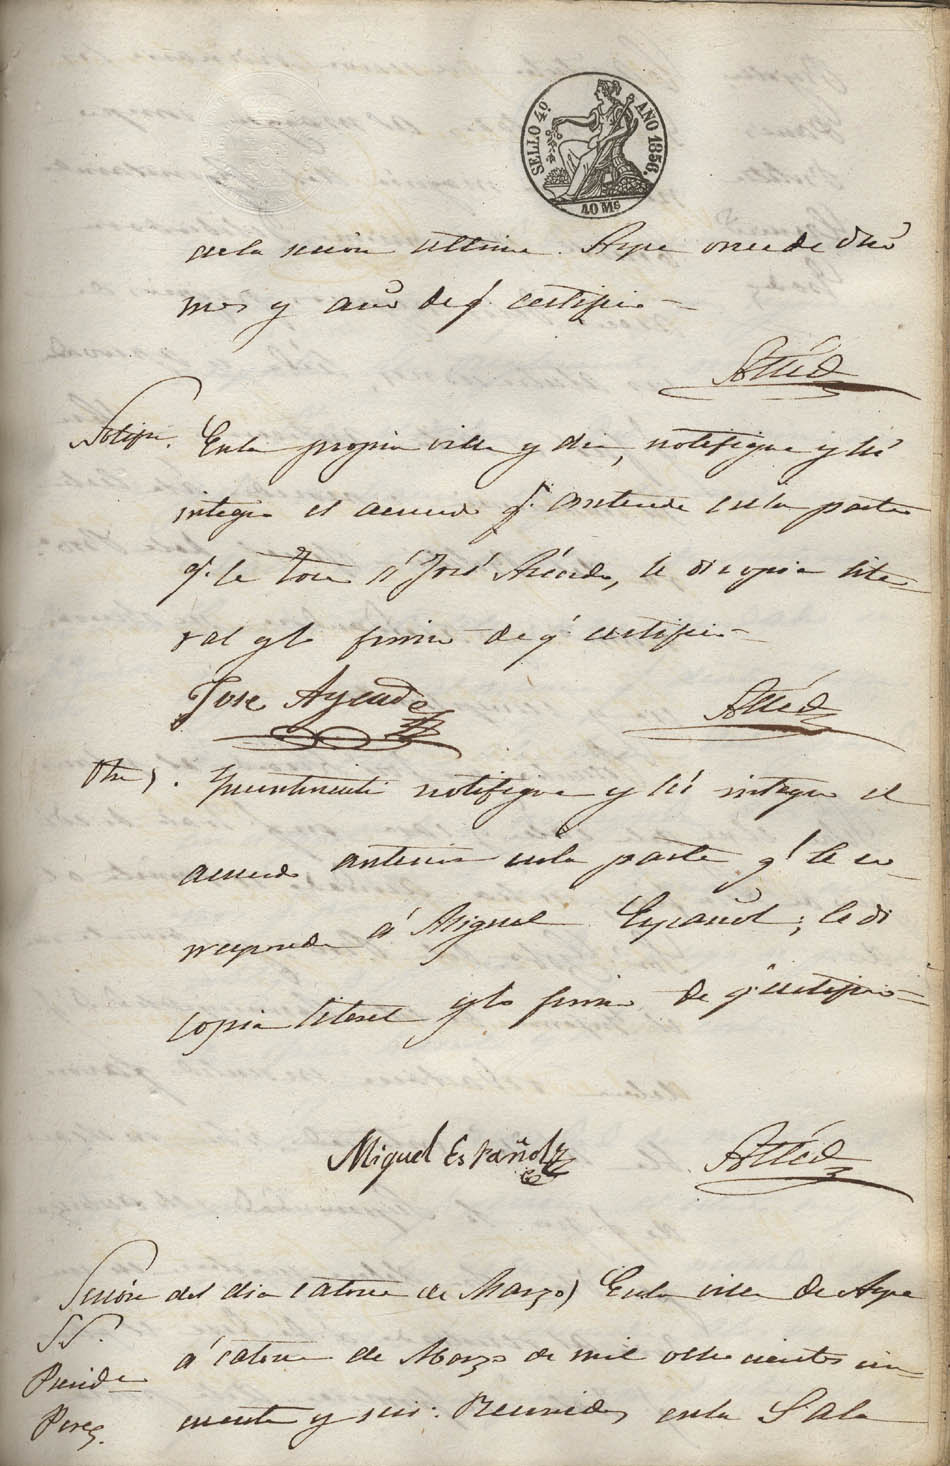 SELLO 4º. AÑO 1856.
40 Ms
en la sesion ultima. Aspe once de dho
mes y año de q. certifico=
Notifn. En la propia villa y dia, notifique y leí
integro el acuerdo q. antecede en la parte
q. le toca á José Alcedo, le di copia lite-
ral y lo firmo de q. certifico=
Jose
Otra). Igualmente notifique y leí integro el
acuerdo anterior en la parte q. le co-
rresponde á Miguel Español; le di
copia literal y lo firmo de q. certifico=
Miguel Español
Sesion del dia catorce de Marzo) En la villa de Aspe
SS.
á catorce de Marzo de mil ocho cientos cin-
Preside
cuenta y seis: Reunidos en la Sala
Perez.